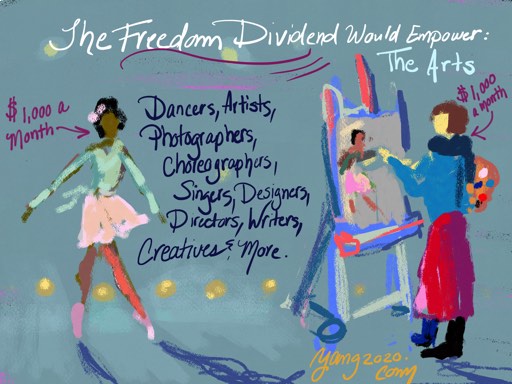 The Freedom Dividend Would Empower:
The Arts
$1,000 a
Month
Dancers, Artists,
Photographers,
Choreographers,
Singers, Designers,
Directors, Writers,
Creatives & More.
$1,000
a month
yang2020.
com